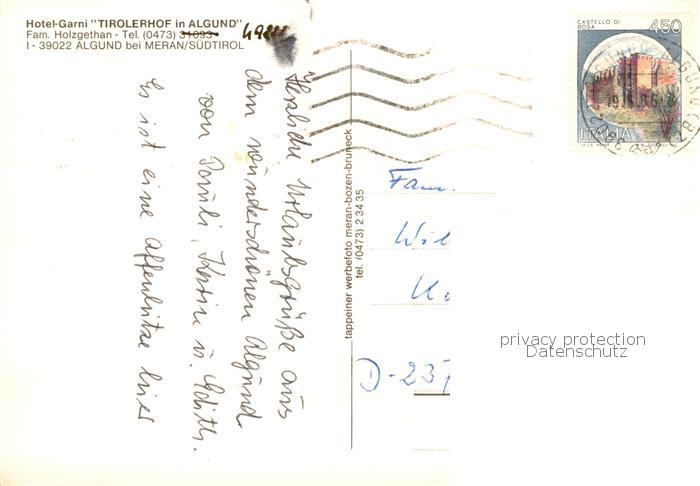 Hotel-Garni "TIROLERHOF in ALGUND"
Fam. Holzgethan - Tel. (0473) 31093
I - 39022 ALGUND bei MERAN/SÜDTIROL
Herzliche Urlaubsgrüße aus
dem wunderschönen Algund
von Pauli, Katrin u. Edith.
Es ist eine Affenhitze hier
tappeiner werbefoto meran-bozen-bruneck
tel. (0473) 2 34 35
CASTELLO DI
BOSA
450
ITALIA
Fam.
Wil
D-237
privacy protection
Datenschutz